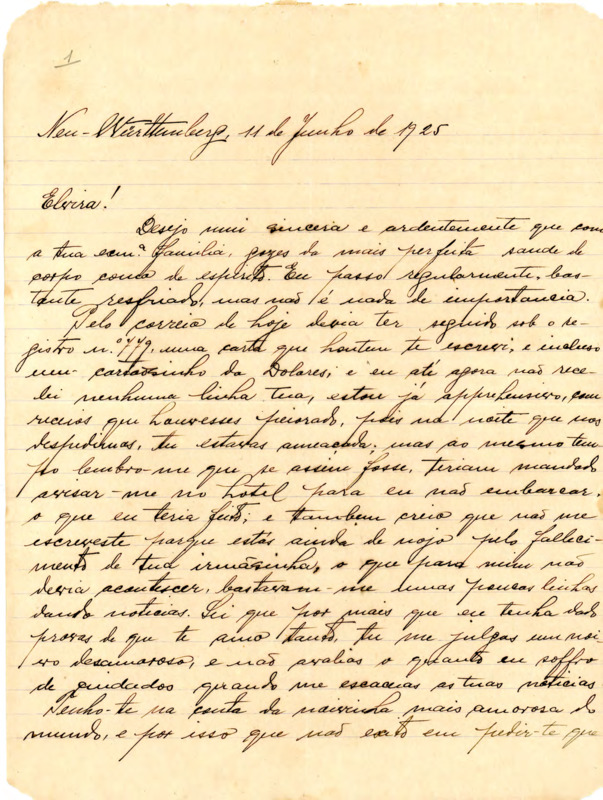 1
Neu-Württemberg, 11 de Junho de 1925
Elvira!
Desejo mui sincera e ardentemente que com
a tua exmª. Familia, gozes da mais perfeita saude de
corpo como de espirito. Eu passo regularmente, bas-
tante resfriado, mas não é nada de importancia.
Pelo correio de hoje devia ter seguido sob o re-
gistro n.º 449, uma carta que hontem te escrevi, e incluso
um cartãosinho da Dolores; e eu até agora não rece-
bi nenhuma linha tua, estou já apprehensivo, com
receios que houvesses peiorado, pois na noite que nos
despedimos, tu estavas ameaçada; mas ao mesmo tem-
po lembro-me que se assim fosse, teriam mandado
avisar-me no hotel para eu não embarcar,
o que eu teria feito; e tambem creio que não me
escreveste porque estás ainda de nojo pelo falleci-
mento de tua irmãsinha, o que para mim não
devia acontescer, bastavam-me umas poucas linhas
dando noticias. Sei que por mais que eu tenha dado
provas de que te amo tanto, tu me julgas um noi-
vo desamoroso, e não avalias o quanto eu soffro
de cuidados quando me escaceas as tuas noticias
Tenho-te na conta da noivinha mais amorosa do
mundo, e por isso que não exito em pedir-te que